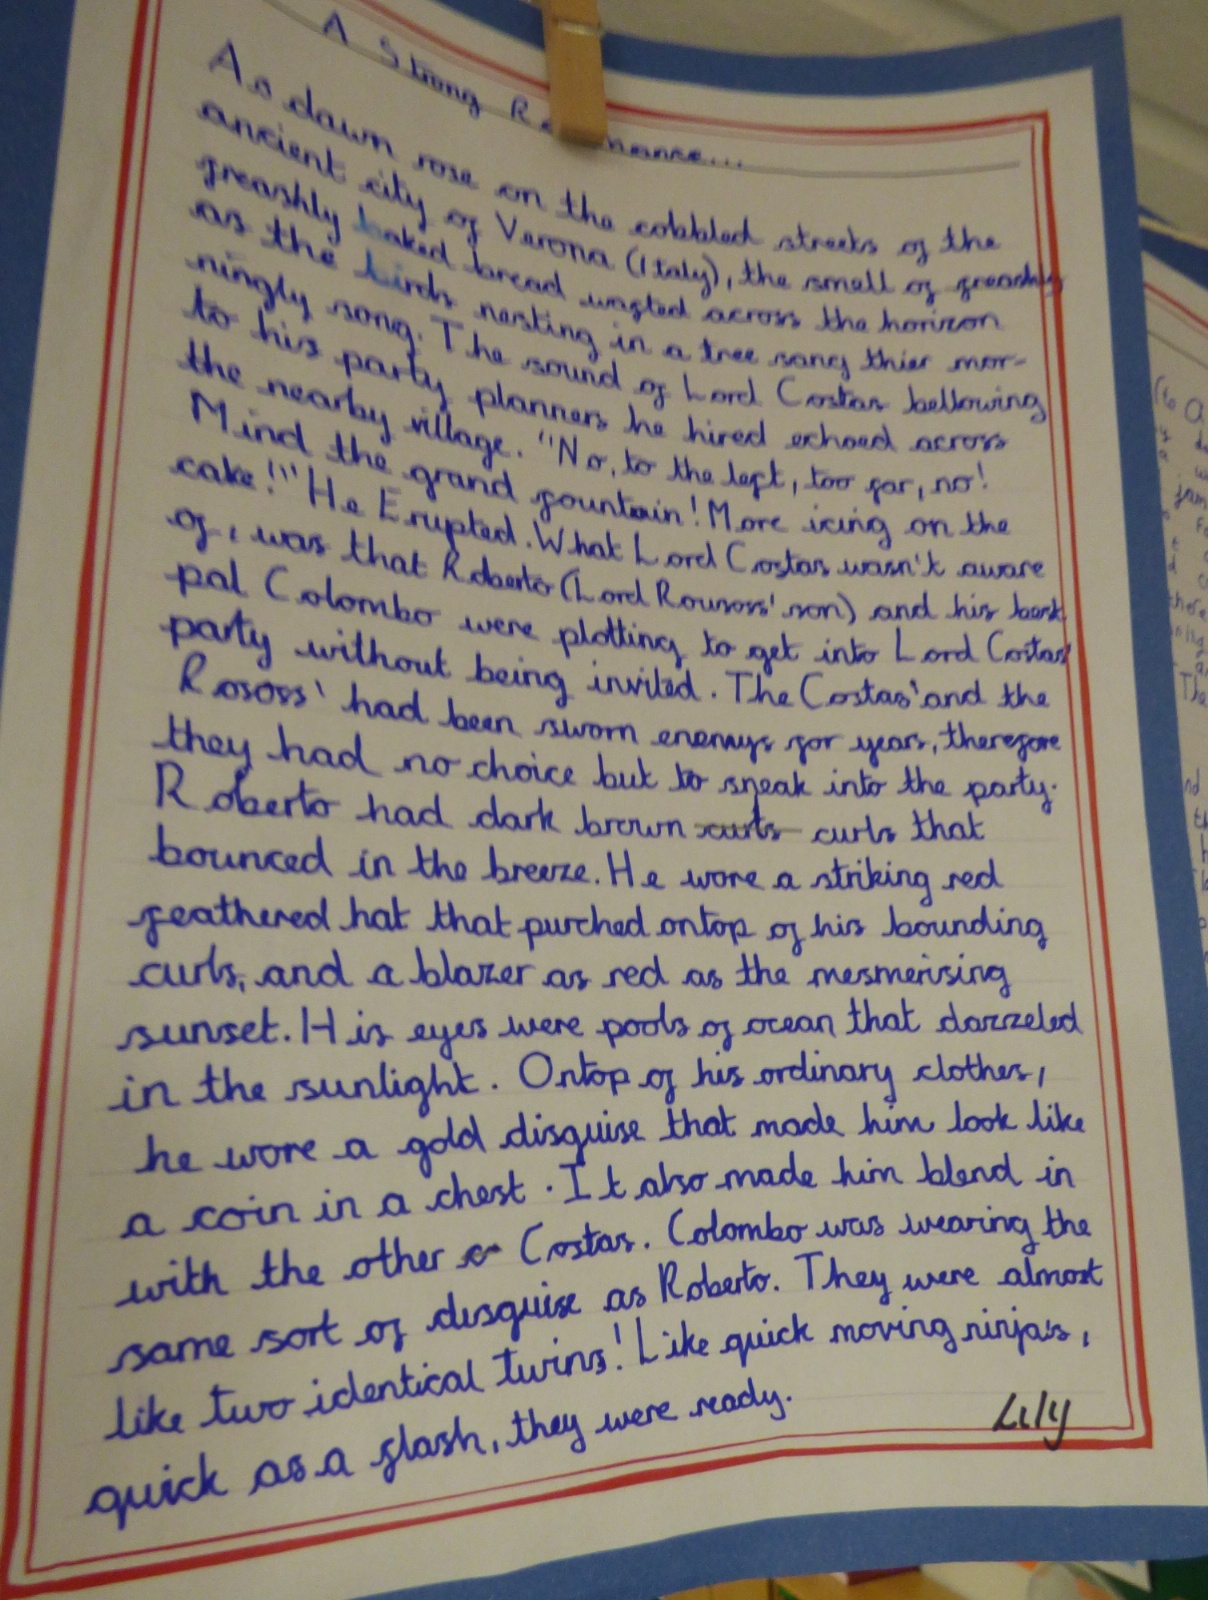 A Strong Romance...
As dawn rose on the cobbled streets of the
ancient city of Verona (Italy), the smell of freashly
freashly baked bread wafted across the horizon
as the birds nesting in a tree sang thier mor-
ningly song. The sound of Lord Costas bellowing
to his party planners he hired echoed across
the nearby village. "No, to the left, too far, no!
Mind the grand fountain! More icing on the
cake!!" He Erupted. What Lord Costas wasn't aware
of, was that Roberto (Lord Rousoss' son) and his best
pal Colombo were plotting to get into Lord Costas'
party without being invited. The Costas' and the
Rososs' had been sworn enemys for years, therefore
they had no choice but to sneak into the party.
Roberto had dark brown curls that
bounced in the breeze. He wore a striking red
feathered hat that purched ontop of his bounding
curls, and a blazer as red as the mesmerising
sunset. His eyes were pools of ocean that dazzeled
in the sunlight. Ontop of his ordinary clothes,
he wore a gold disguise that made him look like
a coin in a chest. It also made him blend in
with the other Costas. Colombo was wearing the
same sort of disguise as Roberto. They were almost
like two identical twins! Like quick moving ninjas,
quick as a flash, they were ready.
Lily